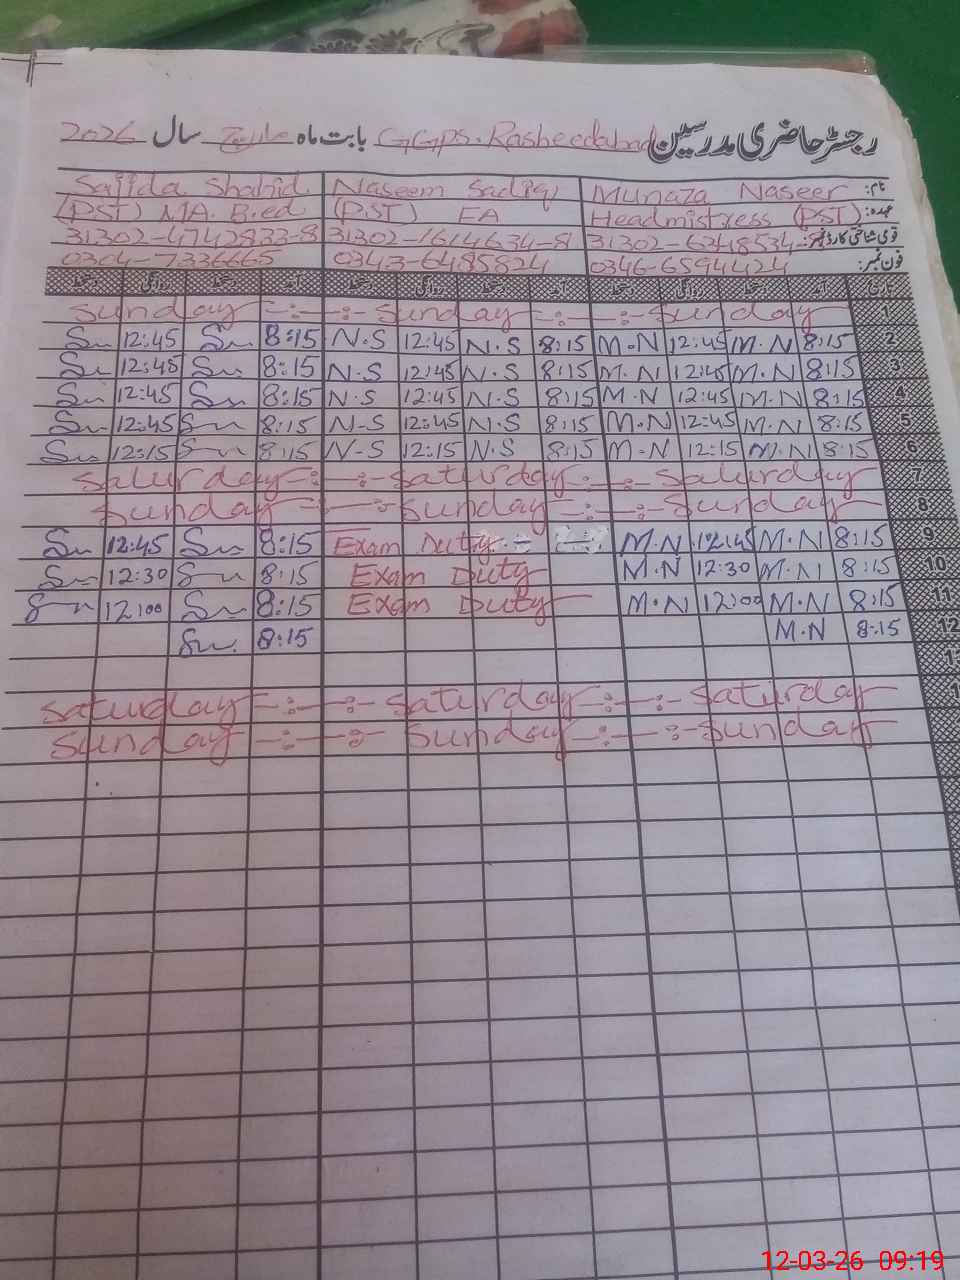 رجسٹر حاضری مدرسین GGPS. Rasheedabad بابت ماہ مارچ سال 2026
نام: Munaza Naseer Naseem Sadiq Sajida Shahid
عہدہ: Headmistress (PST) (PST) FA (PST) MA. B.ed
قومی شناختی کارڈ نمبر: 31302-6348534- 31302-1614634-8 31302-4742833-8
فون نمبر: 0346-6594424 0343-6485824 0304-7336665
تاریخ آمد دستخط روانگی دستخط آمد دستخط روانگی دستخط آمد دستخط روانگی دستخط
1 Sunday -:- -:- Sunday -:- -:- Sunday
2 8:15 M.N 12:45 M.N 8:15 N.S 12:45 N.S 8:15 Su 12:45 Su
3 8:15 M.N 12:45 M.N 8:15 N.S 12:45 N.S 8:15 Su 12:45 Su
4 8:15 M.N 12:45 M.N 8:15 N.S 12:45 N.S 8:15 Su 12:45 Su
5 8:15 M.N 12:45 M.N 8:15 N.S 12:45 N-S 8:15 Su 12:45 Su
6 8:15 M.N 12:15 M.N 8:15 N.S 12:15 N-S 8:15 Su 12:15 Su
7 Saturday -:- -:- Saturday -:- -:- Saturday
8 Sunday -:- -:- Sunday -:- -:- Sunday
9 8:15 M.N 12:45 M.N Exam Duty - 8:15 Su 12:45 Su
10 8:15 M.N 12:30 M.N Exam Duty 8:15 Su 12:30 Su
11 8:15 M.N 12:00 M.N Exam Duty 8:15 Su 12:00 Su
12 8:15 M.N 8:15 Su.
Saturday -:- -:- Saturday -:- -:- Saturday
Sunday -:- -:- Sunday -:- -:- Sunday
12-03-26 09:19